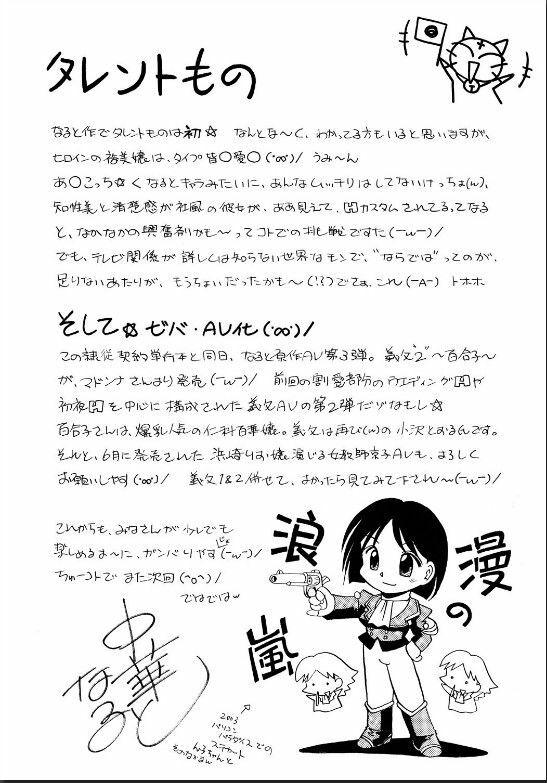 タレントもの
なると作でタレントものは初☆ なんとな〜く、わかってる方もいると思いますが、
ヒロインの裕美嬢は、タイプ皆〇愛〇(・∞・)/ うみ〜ん
あ〇こっち☆くなるとキャラみたいに、あんなムッチリはしてないけっちょ(w)、
知性美と清楚感が社風の彼女が、ああ見えて、囚カスタムされてるってなる
と、なかなかの興奮剤かも〜ってコトでの挑戦ですた(ーωー)/
でも、テレビ関係が詳しくは知らない世界なモンで、"ならでは"ってのが、
足りないあたりが、もうちょいだったかも〜(!?)でてぉ、これ(ーAー) トホホ
そして☆ゼバ・AV化(・∞・)/
この隷従契約単行本と同日、なると原作AV第3弾。義父"2"〜百合子〜
が、マドンナさんより発売(ーωー)/ 前回の割愛者防のウエディング囚や
初夜囚を中心に構成された義父AVの第2弾だゾなもし☆
百合子さんは、爆乳人気の仁科百華嬢。義父は再び(w)の小沢とおるんです。
それと、6月に発売された浜崎りお嬢演じる女教師京子AVも、よろしく
お願いしやす(・∞・)/ 義父1&2併せて、よかったら見てみて下さい〜(ーωー)/
これからも、みなさんが少しでも
楽しめるよーに、ガンバりやすじょ(ーωー)/
ちゅーコトで また次回(^o^)/
ではではw
浪漫の嵐
中華なると
2003
パソコン
パラダイスでの
ステカート
んるちゃんと
そのなかまw